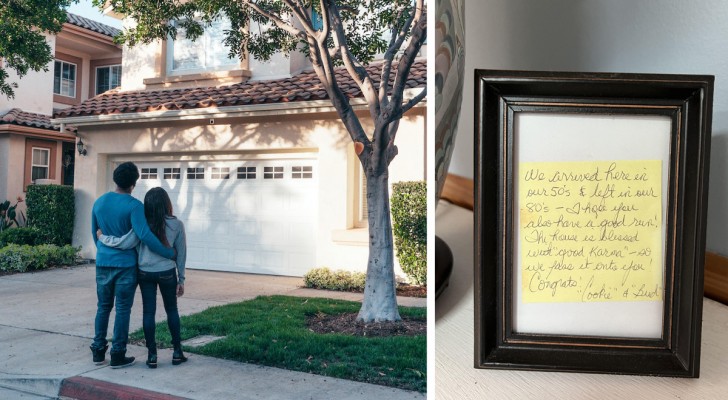 We arrived here in
our 50's & left in our
80's - I hope you
also have a good run!
The house is blessed
with "good Karma" - so
we pass it onto you
Congrats! "Cookie" & "Bud"